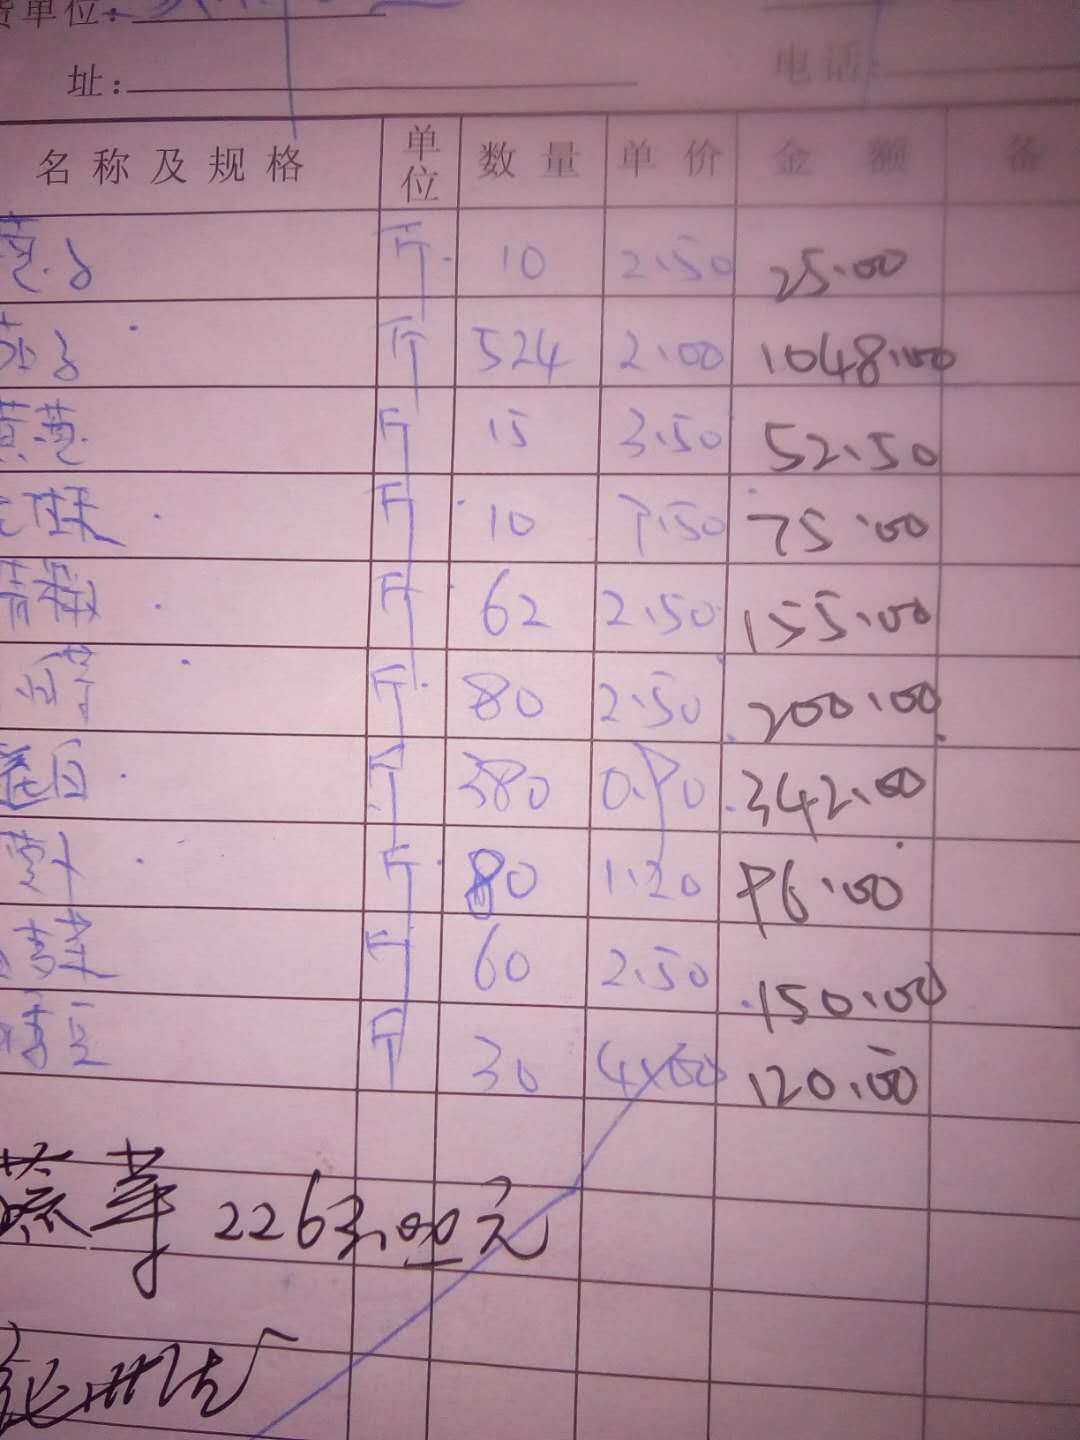 货单位:
址: 电话:
名称及规格 单位 数量 单价 金额 备
葱 斤 10 2.50 25.00
茄子 斤 524 2.00 1048.00
黄葱 斤 15 3.50 52.50
斤 10 7.50 75.00
青椒 斤 62 2.50 155.00
斤 80 2.50 200.00
莲白 斤 380 0.90 342.00
萝卜 斤 80 1.20 96.00
斤 60 2.50 150.00
豆 斤 30 4.00 120.00
蔬菜 2263.00元